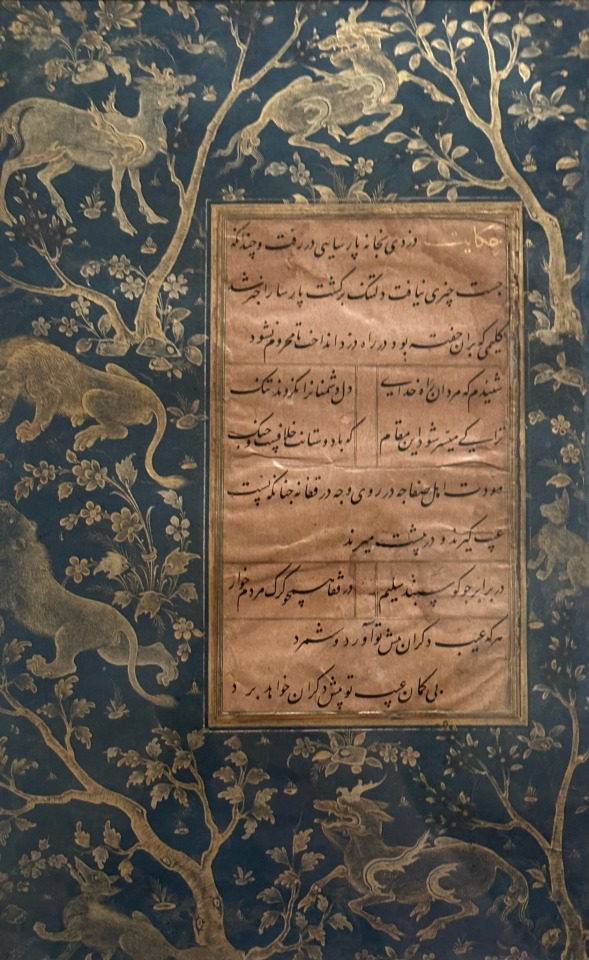 حکایت دزدی بخانه پارسایی در رفت و چندانکه
جست چیزی نیافت دلتنک برکشت پارسا را خبر شد
کلیمی که بران خفته بود در راه دزد انداخت تا محروم نشود
شنیدم که مردان راه خدای دل دشمنان را نکردند تنک
ترا کی میسر شود این مقام که با دوستانت خلافست و جنک
مودت اهل صفا چه در روی و چه در قفا نه چنانکه پست
عیب کیرند و در پیشت میرند
در برابر چو کوسپند سلیم در قفا همچو کرک مردم خوار
هر که عیب دکران پیش تو آورد و شمرد
بی کمان عیب تو پیش دکران خواهد برد